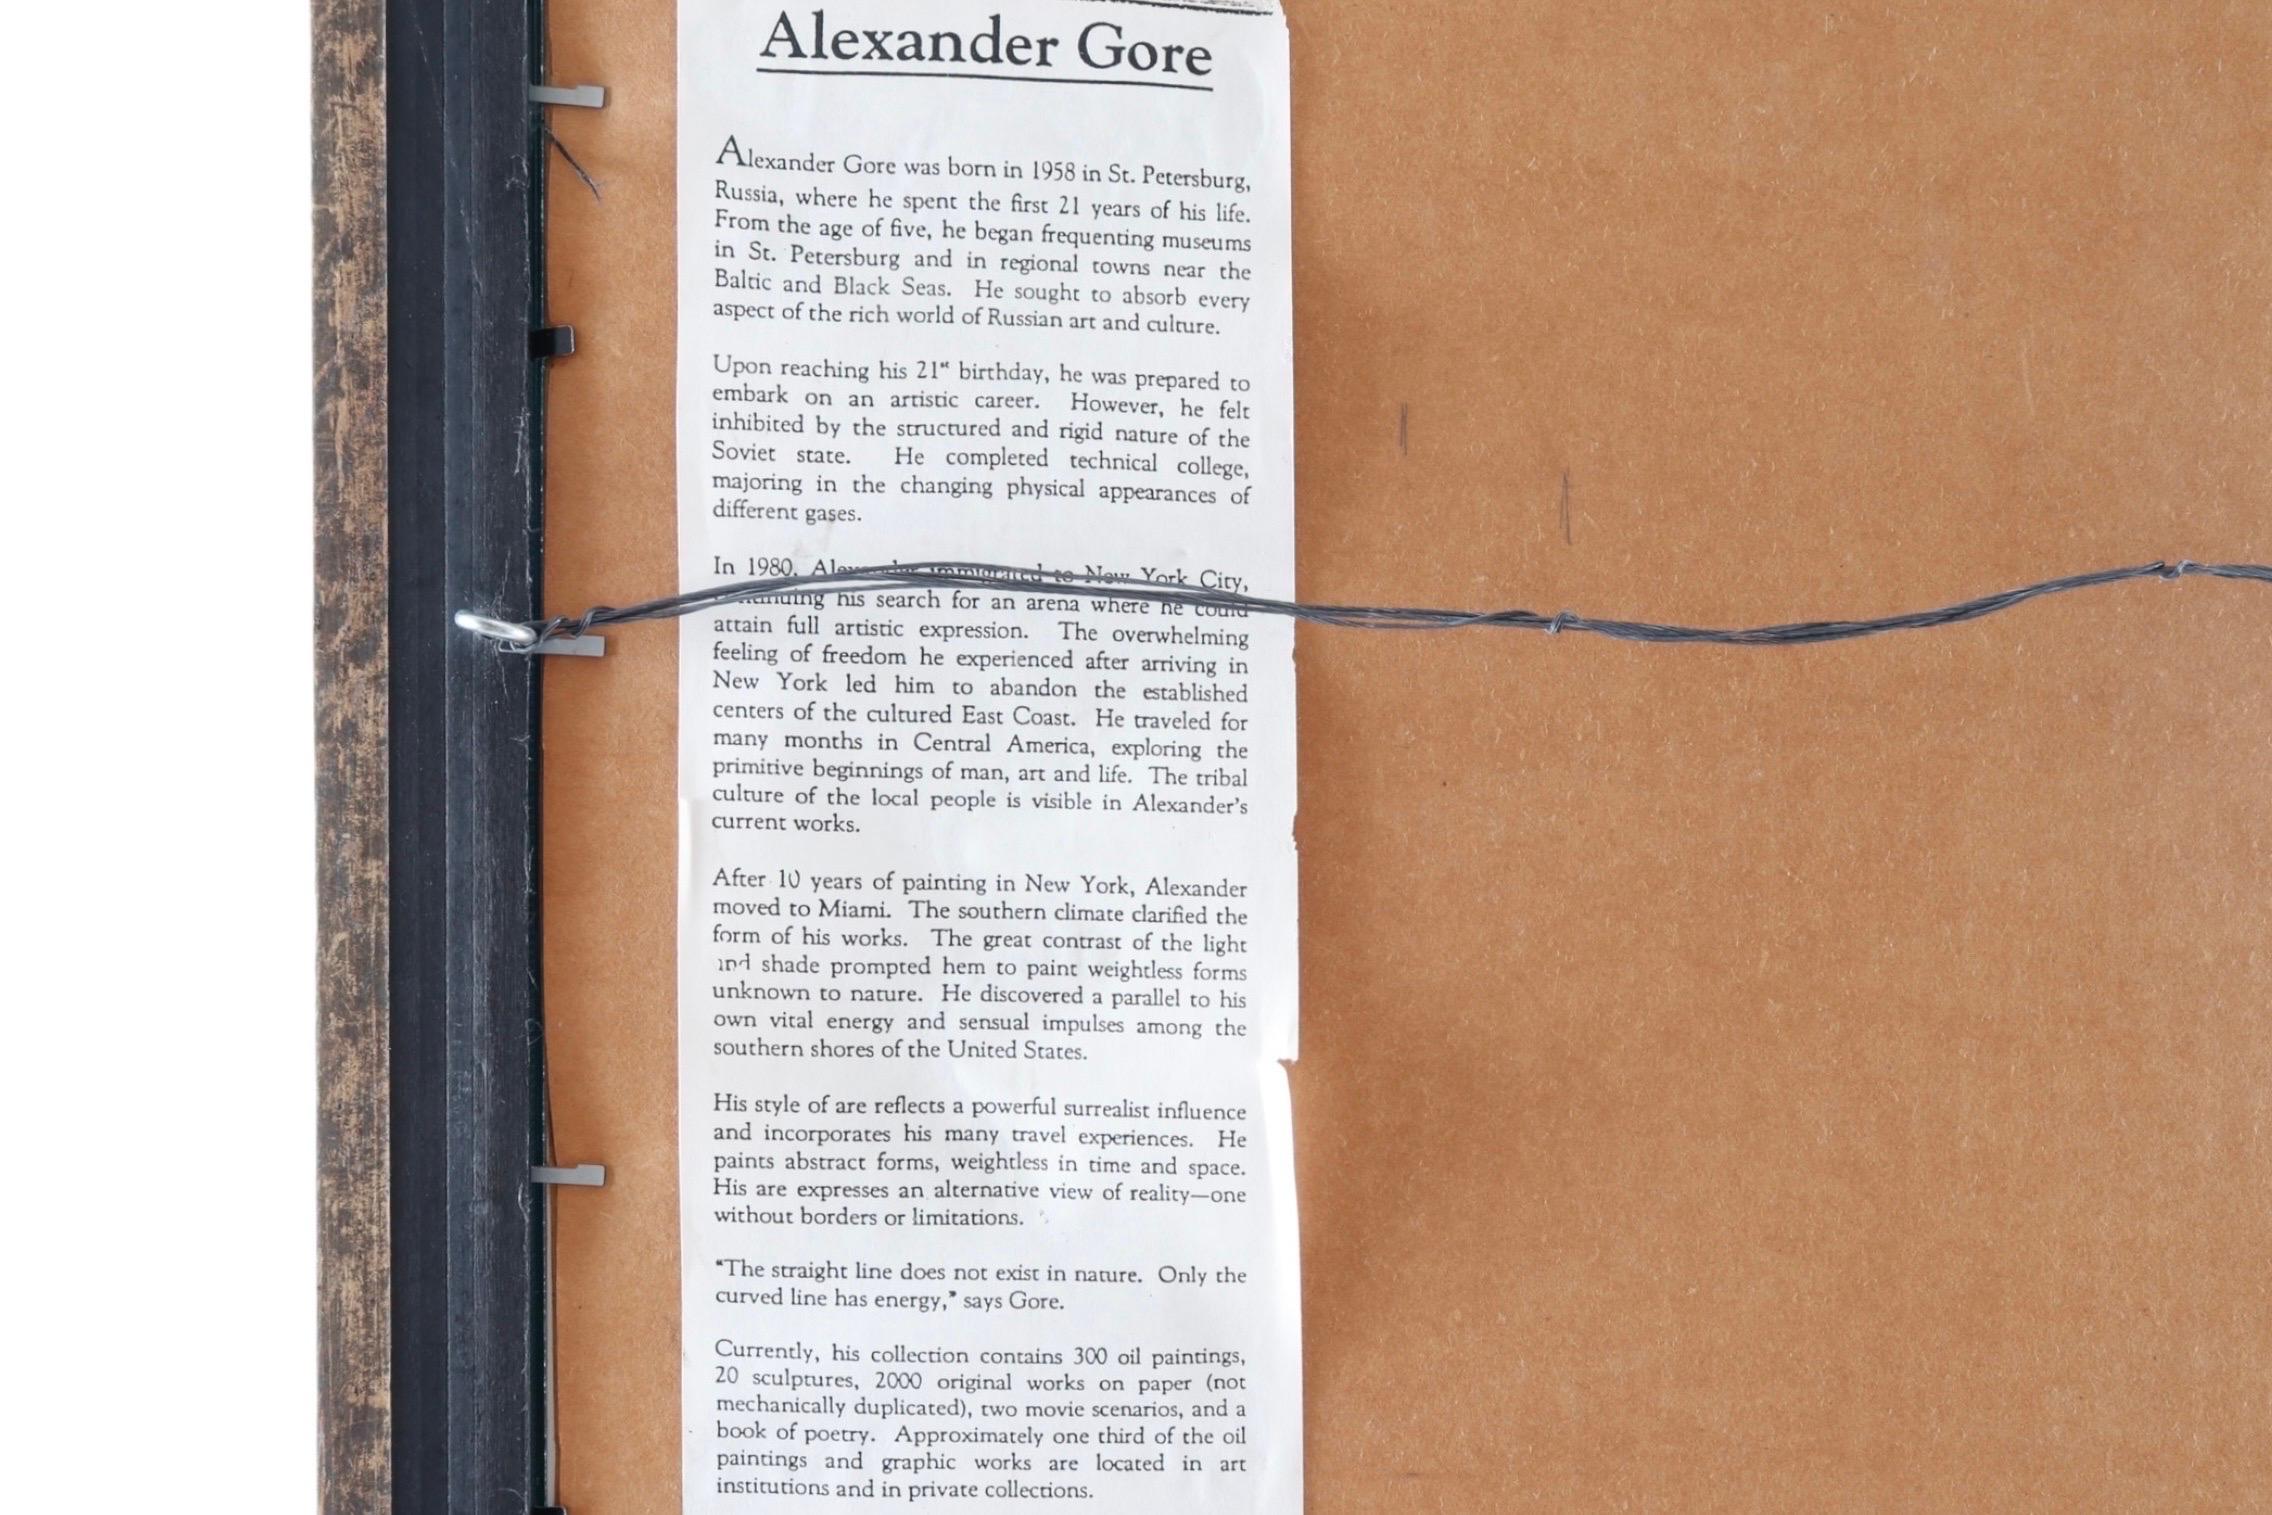 Alexander Gore
Alexander Gore was born in 1958 in St. Petersburg,
Russia, where he spent the first 21 years of his life.
From the age of five, he began frequenting museums
in St. Petersburg and in regional towns near the
Baltic and Black Seas. He sought to absorb every
aspect of the rich world of Russian art and culture.
Upon reaching his 21st birthday, he was prepared to
embark on an artistic career. However, he felt
inhibited by the structured and rigid nature of the
Soviet state. He completed technical college,
majoring in the changing physical appearances of
different gases.
In 1980, Alexander immigrated to New York City,
continuing his search for an arena where he could
attain full artistic expression. The overwhelming
feeling of freedom he experienced after arriving in
New York led him to abandon the established
centers of the cultured East Coast. He traveled for
many months in Central America, exploring the
primitive beginnings of man, art and life. The tribal
culture of the local people is visible in Alexander's
current works.
After 10 years of painting in New York, Alexander
moved to Miami. The southern climate clarified the
form of his works. The great contrast of the light
and shade prompted hem to paint weightless forms
unknown to nature. He discovered a parallel to his
own vital energy and sensual impulses among the
southern shores of the United States.
His style of are reflects a powerful surrealist influence
and incorporates his many travel experiences. He
paints abstract forms, weightless in time and space.
His are expresses an alternative view of reality—one
without borders or limitations.
"The straight line does not exist in nature. Only the
curved line has energy," says Gore.
Currently, his collection contains 300 oil paintings,
20 sculptures, 2000 original works on paper (not
mechanically duplicated), two movie scenarios, and a
book of poetry. Approximately one third of the oil
paintings and graphic works are located in art
institutions and in private collections.